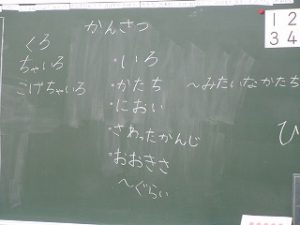 かんさつ
くろ
ちゃいろ
こげちゃいろ
・いろ
・かたち ～みたいなかたち
・におい
・さわったかんじ
・おおきさ
～ぐらい
1 2
3 4
ひ